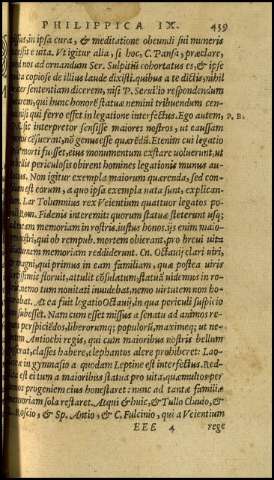 PHILIPPICA IX. 439
in ipsa cura, & meditatione obeundi sui muneris
excessit e vita. Vt igitur alia, si hoc, C. Pansa, præclare,
quod nos ad ornandum Ser. Sulpitiū cohortatus es, & ipse
copiose de illius laude dixisti. quibus a te dictis, nihil
præter sententiam dicerem, nisi P. Seruilio respondendum
qui hunc honorē statuæ nemini tribuendum cen-
nisi qui ferro esset in legatione interfectus. Ego autem, P. B.
sic interpretor sensisse maiores nostros, ut caussam
mortis censuerint, nō genus esse quærēdū. Etenim cui legatio
morti fuisset, eius monumentum exstare voluerunt, ut
bellis periculosis obirent homines legationis munus au-
Non igitur exempla maiorum quærenda, sed con-
est eorum, a quo ipsa exempla nata sunt, explican-
Lar Tolumnius rex Veientium quattuor legatos po-
Rom. Fidenis interemit: quorum statuæ steterunt usq;
meam memoriam in rostris. iustus honos. ijs enim maio-
qui ob rempub. mortem obierant, pro breui vita
memoriam reddiderunt. Cn. Octauij clari viri,
magni, qui primus in eam familiam, quæ postea viris
floruit, attulit cōsulatum: statuā videmus in ro-
nemo tum nouitati inuidebat. nemo virtutem non ho-
At ea fuit legatio Octauij, in qua periculi suspicio
non subesset. Nam cum esset missus a senatu ad animos re-
perspiciēdos, liberorumq; populorū, maximeq; ut ne-
Antiochi regis, qui cum maioribus nostris bellum
classes habere, elephantos alere prohiberet: Lao-
in gymnasio a quodam Leptine est interfectus. Red-
est ei tum a maioribus statua pro vita, quæ multos per
progeniem eius honestaret: nunc ad tantæ familiæ
memoriam sola restaret. Atqui & huic, & Tullo Cluuio, &
Roscio, & Sp. Antio, & C. Fulcinio, qui a Veientium
EEE 4 rege